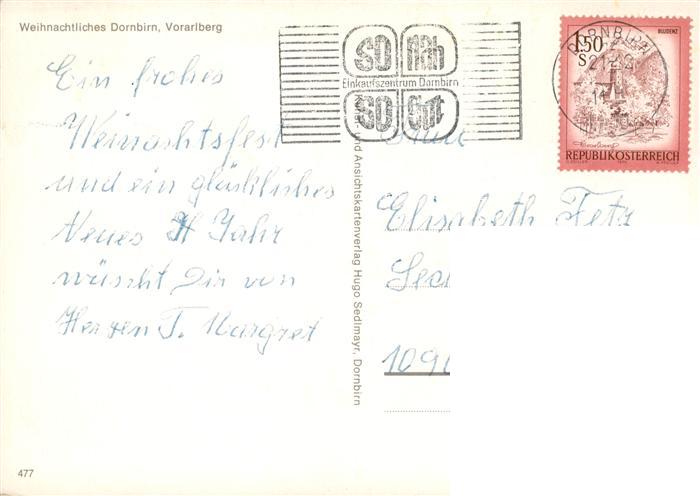 Weihnachtliches Dornbirn, Vorarlberg
Ein frohes
Weinachtsfest
und ein glückliches
Neues H Jahr
wünscht Dir von
Herzen T. Margret
477
SO nah
Einkaufszentrum Dornbirn
SO gut
und Ansichtskartenverlag Hugo Sedlmayr, Dornbirn
DORNBIRN
1.50
S
BLUDENZ
REPUBLIK ÖSTERREICH
Elisabeth Fetz
Sec
109